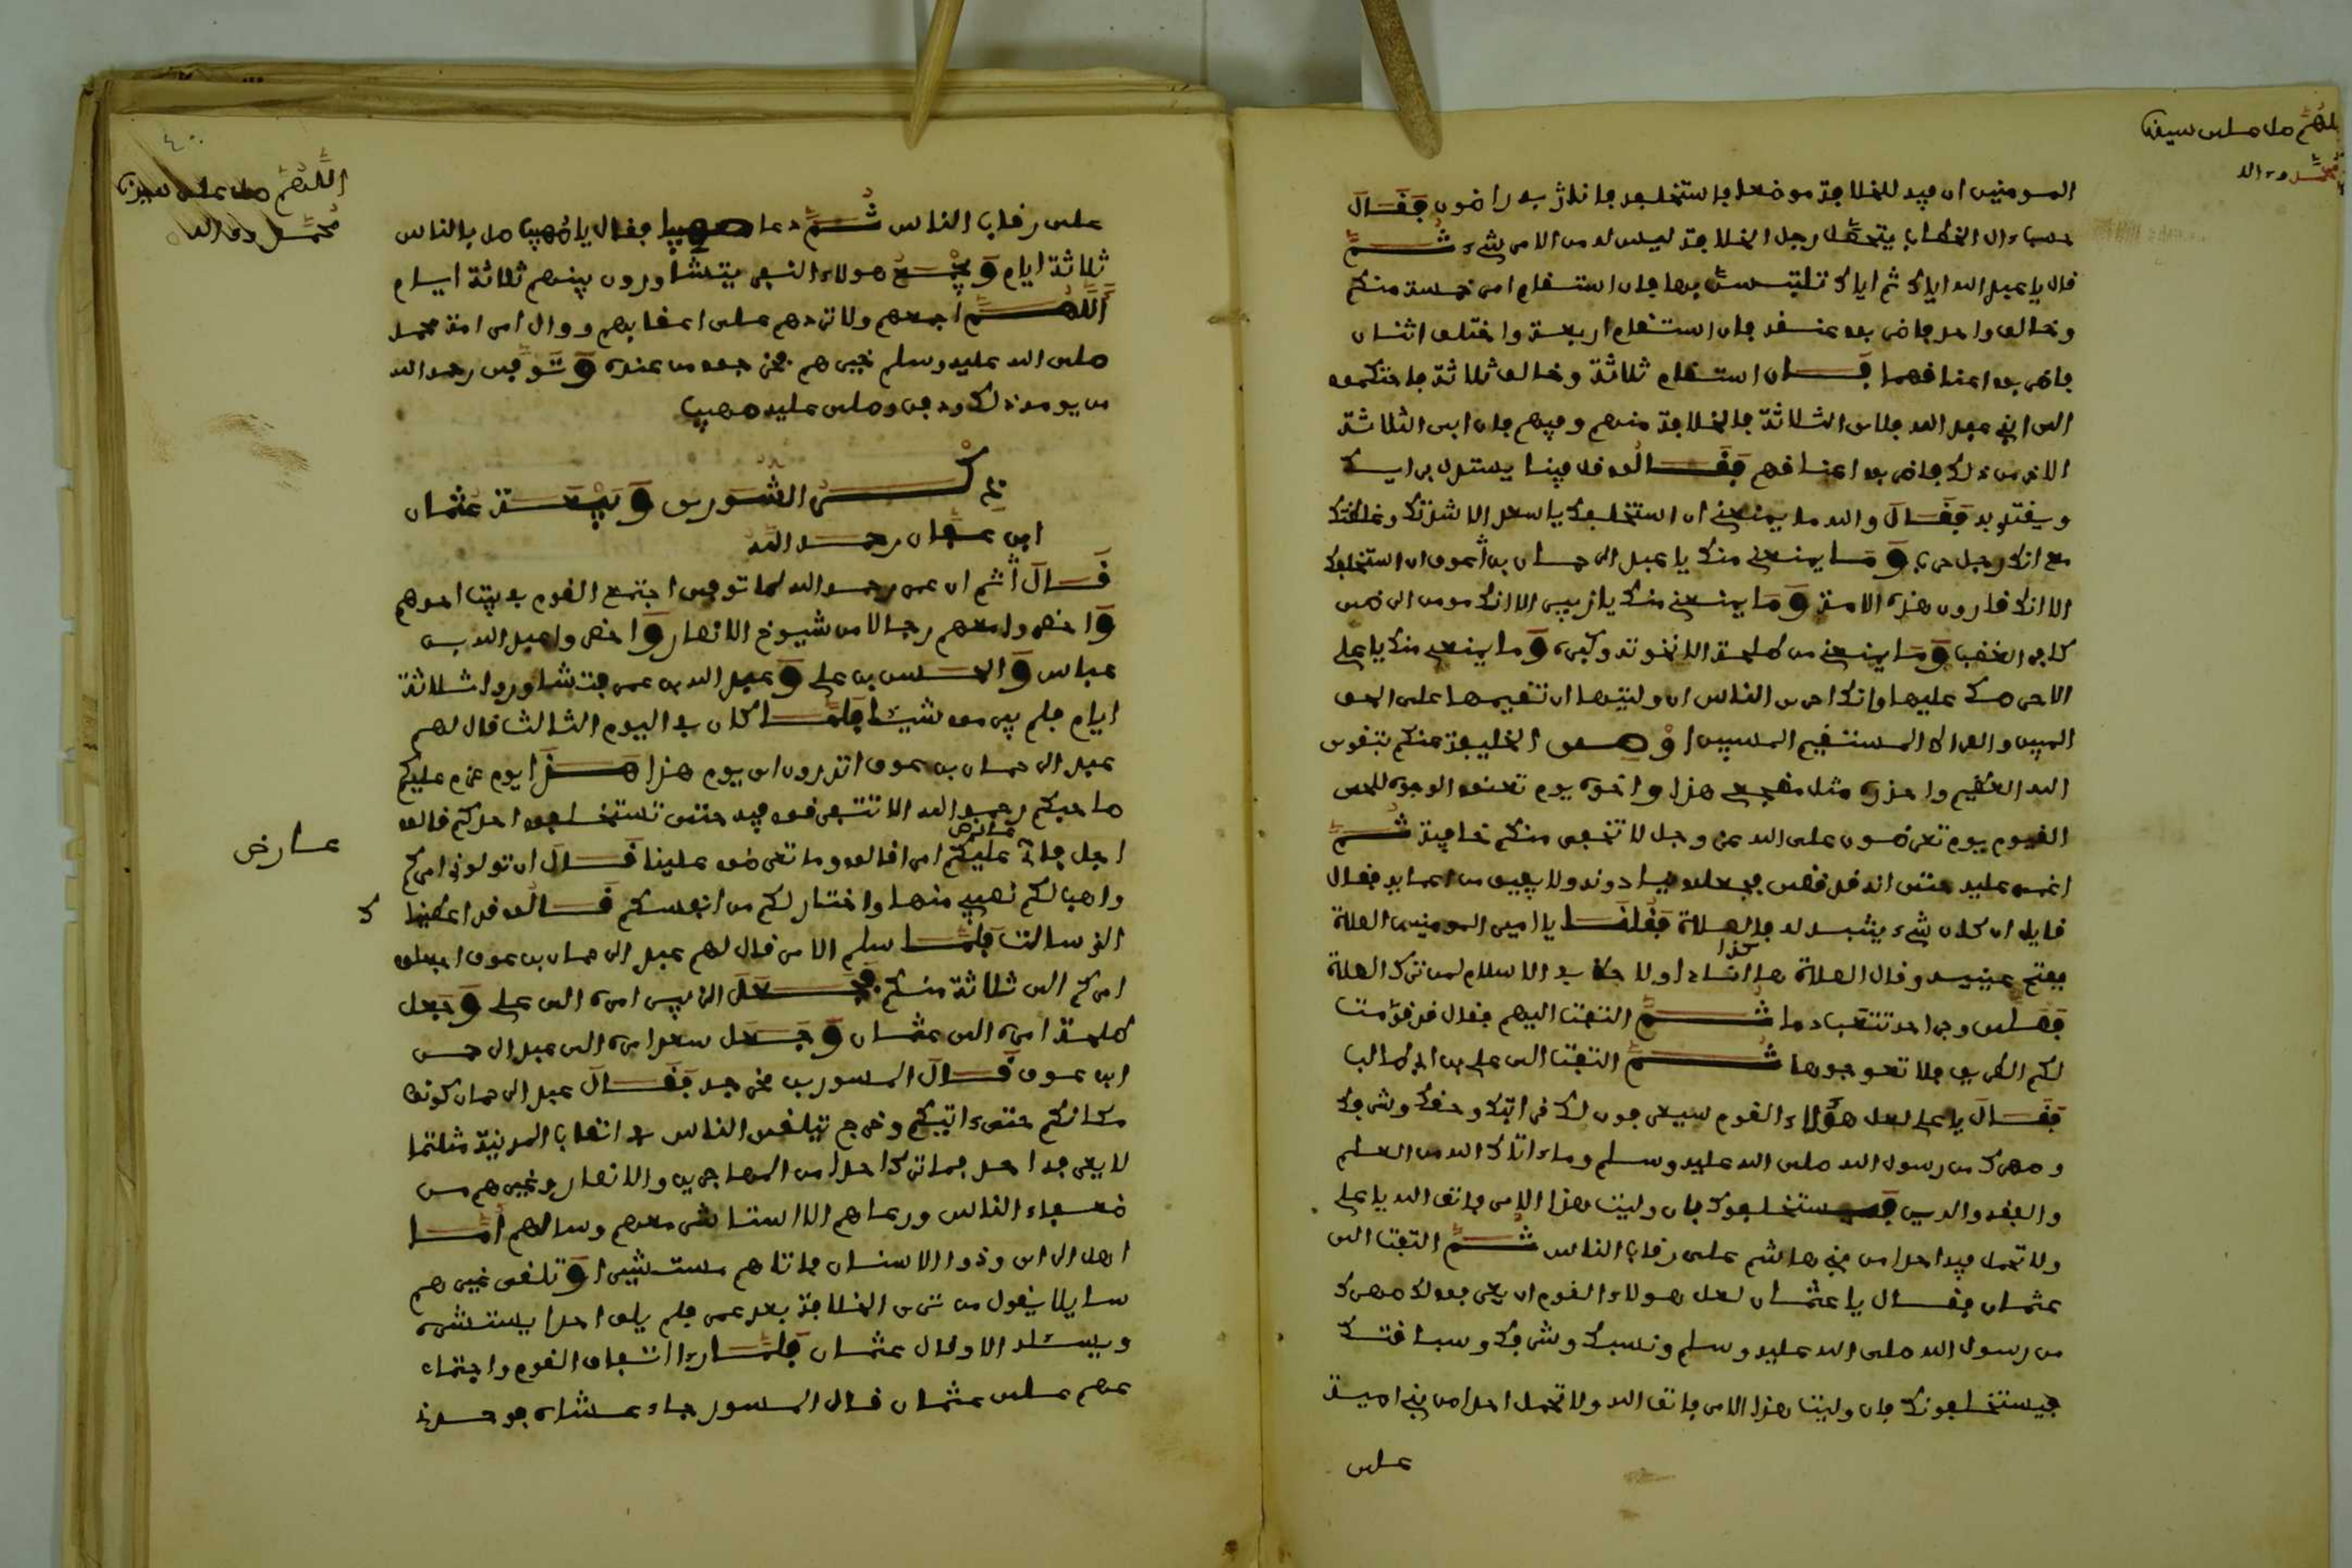 اللهم صل على سيدنا
محمد وءاله
المومنين ان فيه للخلافة موضعا فاستخلفه فانا به راضون فقال
حسب ءال الخطاب يتحمل رجل الخلافة ليس له من الامر شيء ثم
قال يا عبد الله اياك ثم اياك تلتبس بها فان استقام امر خمسة منكم
وخالف واحد فاضربوا عنقه فان استقام اربعة واختلف اثنان
فاضربوا اعناقهما فان استقام ثلاثة وخالف ثلاثة فاحتكموا
الى ابني عبد الله فلاى الثلاثة فالخلافة منهم وفيهم فان ابى الثلاثة
الاخر من ذلك فاضربوا اعناقهم فقالوا قل فينا يستدل برايك
ويقتد به فقال والله ما يمنعني ان استخلفك يا سعد الا شدتك وغلظتك
مع انك رجل حرب وما يمنعني منك يا عبد الرحمان بن عوف ان استخلفك
الا انك قارون هذه الامة وما يمنعني منك يا زبير الا انك مومن الرضى
كافر الغضب وما يمنعني من طلحة الا نخوته وكبره وما يمنعني منك يا علي
الا حرصك عليها وانك احرى الناس ان وليتها ان تقيمها على الحق
المبين والصراط المستقيم المبين اوصى الخليفة منكم بتقوى
الله العظيم واحذره مثل مضجعي هذا واخوفه يوم تعنوا الوجوه للحي
القيوم يوم تعرضون على الله عز وجل لا تخفى منكم خافية ثم
اغمي عليه حتى انه قد قضى فجعلوا ينادونه ولا يفيق من اغمايه فقال
قايل ان كان شيء ينبه له فالصلاة فقلنا يا امير المومنين الصلاة
كذا
ففتح عينيه وقال الصلاة ها انا ذا ولا حظ في الاسلام لمن ترك الصلاة
فصلى وجراحه تنثعب دما ثم التفت اليهم فقال قد قومت
لكم الطريق فلا تعوجوها ثم التفت الى علي بن ابي طالب
فقال يا علي لعل هؤلاء القوم سيعرفون لك قرابتك وحقك وشرفك
وصهرك من رسول الله صلى الله عليه وسلم وما ءاتاك الله من العلم
والفقه والدين فيستخلفوك فان وليت هذا الامر فاتق الله يا علي
ولا تحمل فيه احدا من بني هاشم على رقاب الناس ثم التفت الى
عثمان فقال يا عثمان لعل هولاء القوم ان يعرفوا لك صهرك
من رسول الله صلى الله عليه وسلم ونسبك وشرفك وسابقتك
فيستخلفونك فان وليت هذا الامر فاتق الله ولا تحمل احدا من بني امية
على
٤٠
اللهم صل على سيدنا
محمد وءاله
على رقاب الناس ثم دعا صهيبا فقال يا صهيب صل بالناس
ثلاثة ايام ويجمع هولاء النفر يتشاورون بينهم ثلاثة ايام
اللهم اجمعهم ولا تردهم على اعقابهم ووال امر امة محمد
صلى الله عليه وسلم خيرهم فخرجوا من عنده وتوفى رحمه الله
من يومه ذلك ودفن وصلى عليه صهيب
ذكر الشورى وبيعة عثمان
ابن عفان رحمه الله
قال ثم ان عمر رحمه الله لما توفى اجتمع القوم في بيت احدهم
واحضروا معهم رجالا من شيوخ الانصار واحضروا عبد الله بن
عباس والحسن بن علي وعبد الله بن عمر فتشاوروا ثلاثة
ايام فلم يبرموا شيئا فلما كان في اليوم الثالث قال لهم
عبد الرحمان بن عوف اتدرون اي يوم هذا هذا يوم عزم عليكم
صاحبكم رحمه الله الا تتفرقوا فيه حتى تستخلفوا احدكم قالوا
عارض
اجل فاني عليكم امرا قالوا وما تعرضه علينا قال ان تولوني امركم
عارض
واهب لكم نصيبي منها واختار لكم من انفسكم قالوا قد اعطيناك
الذي سالت فلما سلم الامر قال لهم عبد الرحمان بن عوف اجعلوا
امركم الى ثلاثة منكم فجعل الزبير امره الى علي وجعل
طلحة امره الى عثمان وجعل سعد امره الى عبد الرحمن
ابن عوف قال المسور بن مخرمة فقال عبد الرحمان كونوا
مكانكم حتى ءاتيكم وخرج يتلقى الناس في انقاب المدينة متلثما
لا يعرفه احد فما ترك احدا من المهاجرين والانصار وغيرهم من
ضعفاء الناس ورعاهم الا استاشرهم وسالهم اما
اهل الراي وذوا الاسنان فاتاهم مستشيرا وتلقى غيرهم
سايلا يقول من ترى الخلافة بعد عمر فلم يلق احدا يستشيره
ويسئله الا وقال عثمان فلما راا اتفاق القوم واجتماء
عهم على عثمان قال المسور جاء عشاء فوجدني